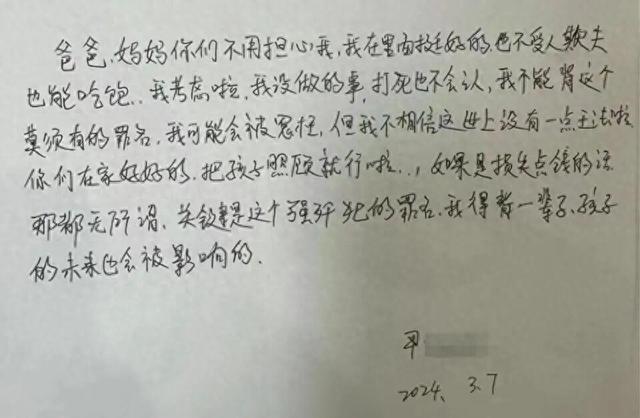 爸爸、妈妈你们不用担心我,我在里面挺好的,也不受人欺夫
也能吃饱..我考虑啦,我没做的事,打死也不会认,我不能背这个
莫须有的罪名,我可能会被冤枉,但我不相信这世上没有一点王法啦
你们在家好好的,把孩子照顾就行啦..,如果是损失点钱的话
那都无所谓、关键是这个强奸犯的罪名,我得背一辈子、孩子
的未来也会被影响的.
2024、3.7